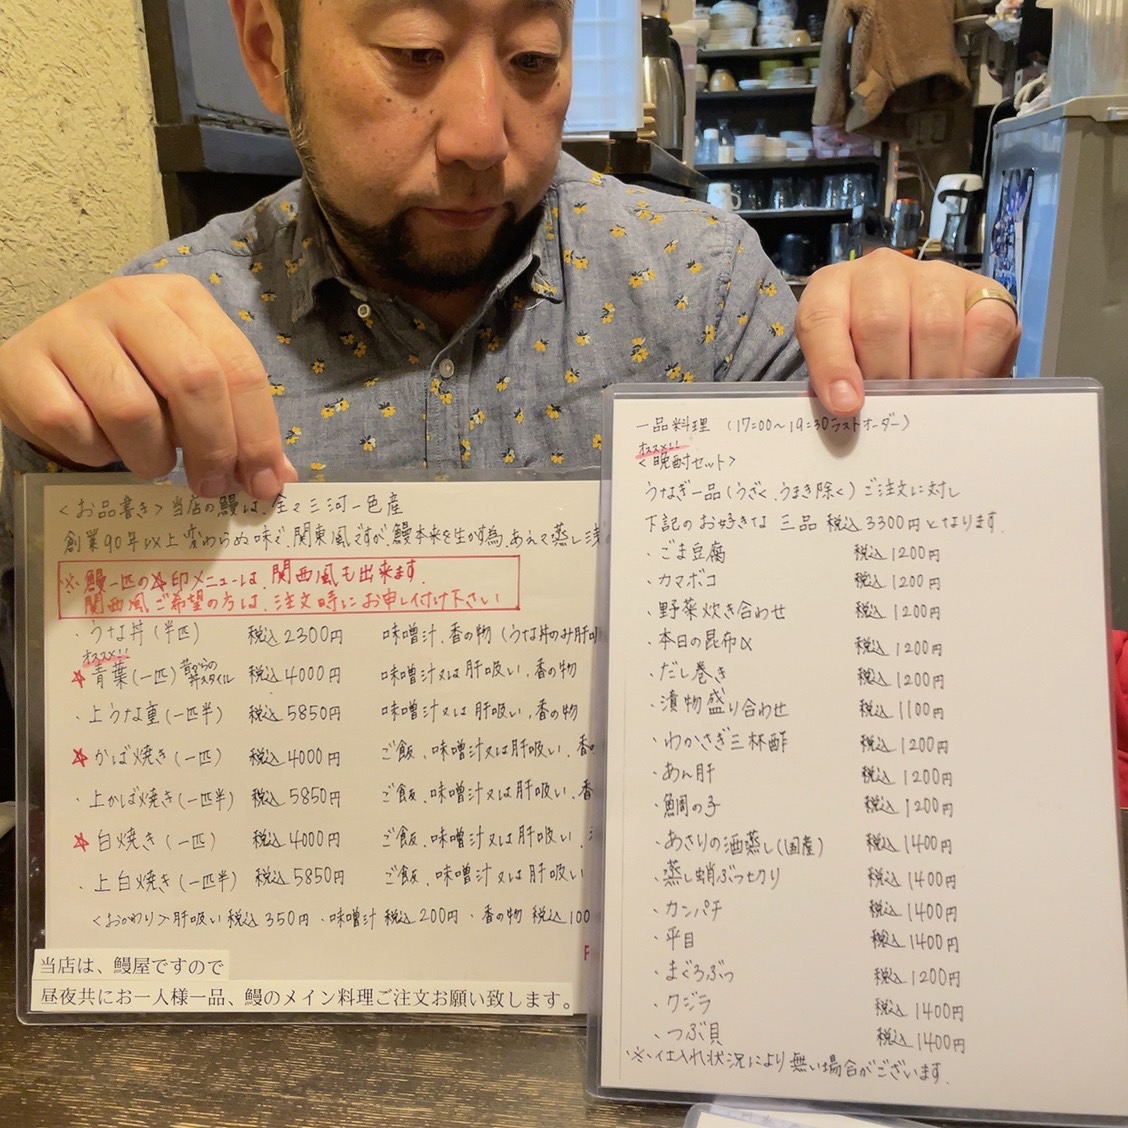 <お品書き> 当店の鰻は、全々三河一色産
創業90年以上変わらぬ味で、関東風ですが、鰻本来を生かす為、あえて蒸し浅
※鰻一匹の☆印メニューは、関西風も出来ます。
関西風ご希望の方は、注文時にお申し付け下さい
・うな丼(半匹) 税込2300円 味噌汁、香の物(うな丼のみ肝吸
オススメ!!
☆青葉(一匹)昔からの丼スタイル 税込4000円 味噌汁又は肝吸い、香の物
・上うな重(一匹半) 税込5850円 味噌汁又は肝吸い、香の物
☆かば焼き(一匹) 税込4000円 ご飯、味噌汁又は肝吸い、香の
・上かば焼き(一匹半) 税込5850円 ご飯、味噌汁又は肝吸い、香
☆白焼き(一匹) 税込4000円 ご飯、味噌汁又は肝吸い、
・上白焼き(一匹半) 税込5850円 ご飯、味噌汁又は肝吸い
<おかわり>肝吸い 税込350円・味噌汁 税込200円・香の物 税込100
当店は、鰻屋ですので
昼夜共にお一人様一品、鰻のメイン料理ご注文お願い致します。
一品料理 (17:00〜19:30ラストオーダー)
オススメ!!
<晩酌セット>
うなぎ一品(うざく、うまき除く)ご注文に対し
下記のお好きな三品 税込3300円となります。
・ごま豆腐 税込1200円
・カマボコ 税込1200円
・野菜炊き合わせ 税込1200円
・本日の昆布〆 税込1200円
・だし巻き 税込1200円
・漬物盛り合わせ 税込1100円
・わかさぎ三杯酢 税込1200円
・あん肝 税込1200円
・鯛の子 税込1200円
・あさりの酒蒸し(国産) 税込1400円
・蒸し蛸ぶつ切り 税込1400円
・カンパチ 税込1400円
・平目 税込1400円
・まぐろぶつ 税込1200円
・クジラ 税込1400円
・つぶ貝 税込1400円
・※・仕入れ状況により無い場合がございます。